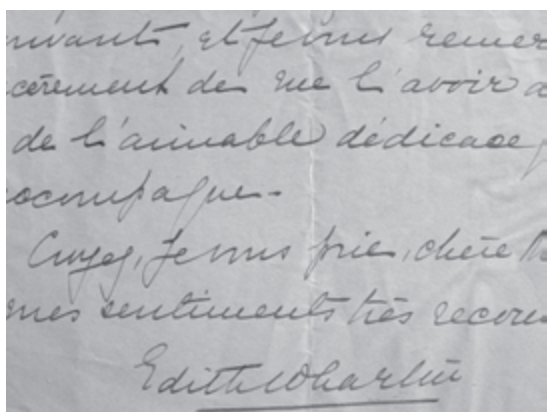 ivants, et je vous remer
cèrement de me l'avoir a
de l'aimable dédicace
accompagne.
Croyez, je vous prie, chère M
mes sentiments très recon
Edith Wharton